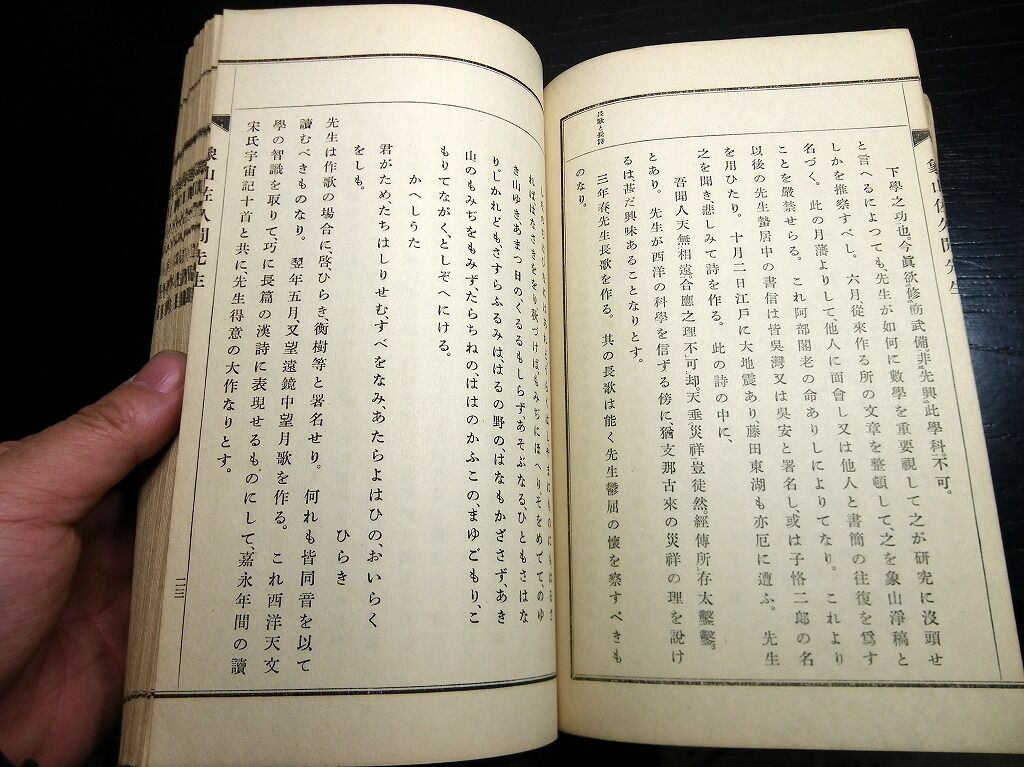 象山佐久間先生
長歌と長詩
下學之功也、今眞欲修飭武備、非先興此學科不可。
と言へるによつても、先生が如何に數學を重要視して之が研究に沒頭せ
しかを推察すべし。 六月從來作る所の文章を整頓して、之を象山淨稿と
名づく。 此の月藩よりして、他人に面會し又は他人と書簡の往復を爲す
ことを嚴禁せらる。 これ阿部閣老の命ありしによりてなり。 これより
以後の先生蟄居中の書信は皆吳灣又は吳安と署名し、或は子恪二郎の名
を用ひたり。 十月二日江戸に大地震あり、藤田東湖も亦厄に遭ふ。 先生
之を聞き、悲しみて詩を作る。 此の詩の中に、
吾聞人天無相遠、合應之理不可却。天垂災祥豈徒然、經傳所存太鑿鑿。
とあり。 先生が西洋の科學を信ずる傍に、猶支那古來の災祥の理を說け
るは、甚だ興味あることなりとす。
三年春先生長歌を作る。 其の長歌は能く先生鬱屈の懷を察すべきも
のなり。
ればはなさきをり秋づけば、もみぢにほへり、そをめでて、のゆ
き山ゆき、あまつ日の、くるるもしらず、あそぶなる、ひともさはな
り、しかれども、さすらふるみは、はるの野の、はなもかざさず、あき
山の、もみぢをもみず、たらちねの、ははのかふこの、まゆごもり、こ
もりてながく、としぞへにける。
かへしうた
君がため、たちはしりせむ、すべをなみ、あたらよはひの、おいらく
をしも。
ひらき
先生は作歌の場合に、啓、ひらき、衡樹等と署名せり。 何れも皆同音を以て
讀むべきものなり。 翌年五月、又望遠鏡中望月歌を作る。 これ西洋天文
學の智識を取りて、巧に長篇の漢詩に表現せるものにして、嘉永年間の讀
宋氏宇宙記十首と共に、先生得意の大作なりとす。
象山佐久間先生
二三